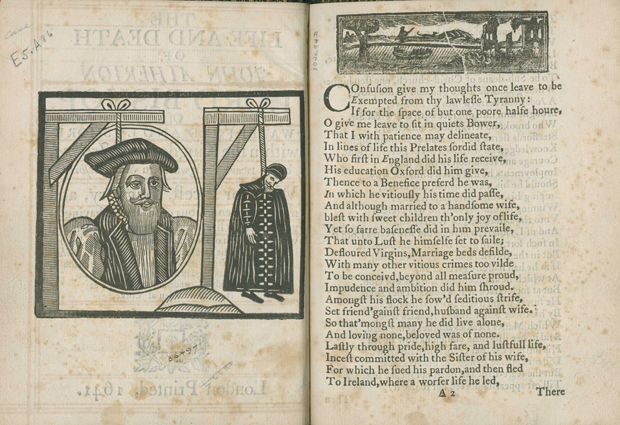 E5.A86
COnfusion give my thoughts once leave to be
Exempted from thy lawlesse Tyranny:
If for the space of but one poore halfe houre,
O give me leave to sit in quiets Bower,
That I with patience may delineate,
In lines of life this Prelates sordid state,
Who first in England did his life receive,
His education Oxford did him give,
Thence to a Benefice preferd he was,
In which he vitiously his time did passe,
And although married to a handsome wife,
blest with sweet children th'only joy of life,
Yet so farre basenesse did in him prevaile,
That unto Lust he himselfe set to saile;
Defloured Virgins, Marriage beds defilde,
With many other vitious crimes too vilde
To be conceivd, beyond all measure proud,
Impudence and ambition did him shroud.
Amongst his flock he sow'd seditious strife,
Set friend'gainst friend, husband against wife.
So that'mongst many he did live alone,
And loving none, beloved was of none.
Lastly through pride, high fare, and lustfull life,
Incest committed with the Sister of his wife,
For which he sued his pardon, and then fled
To Ireland, where a worser life he led,
A 2 There
THE
LIFE AND DEATH
OF
JOHN ATHERTON
London Printed: 1641.